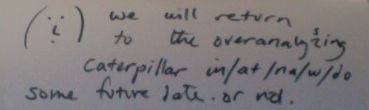 (¿) we will return
to the overanalyzing
caterpillar in/at/na/w/do
some future date. or not.